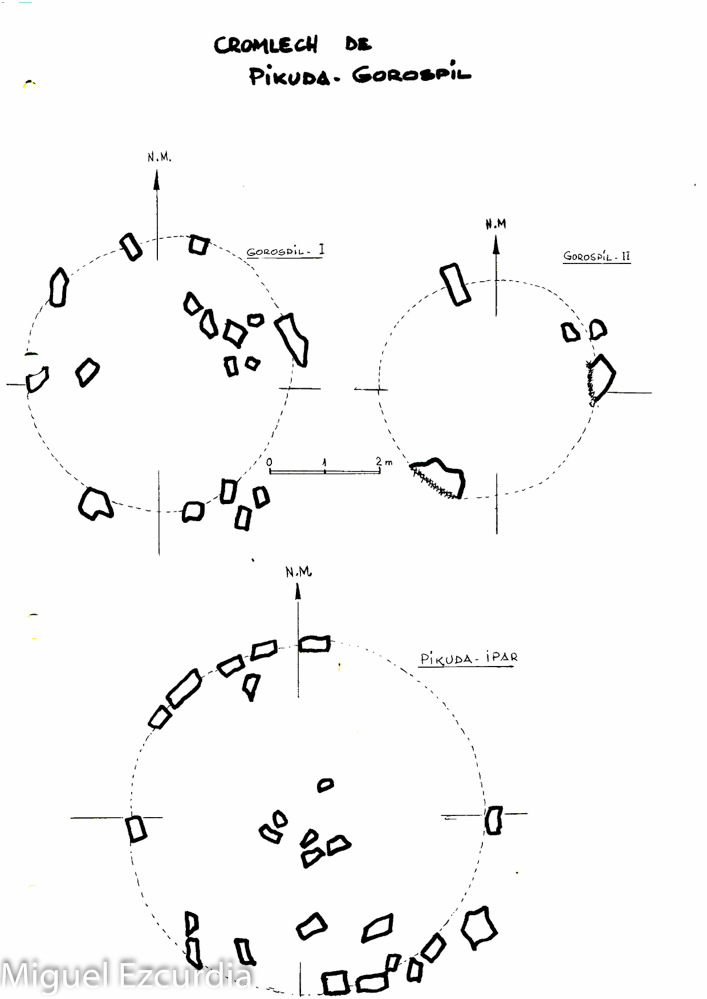 CROMLECH DE
PIKUDA - GOROSPIL
N.M.
GOROSPIL - I
N.M
GOROSPIL - II
0 1 2 m
N.M.
PIKUDA - IPAR
Miguel Ezcurdia